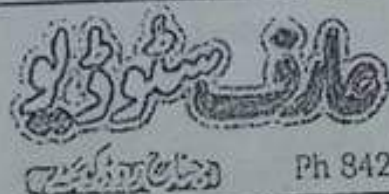 عارف سٹوڈیو
Ph 842